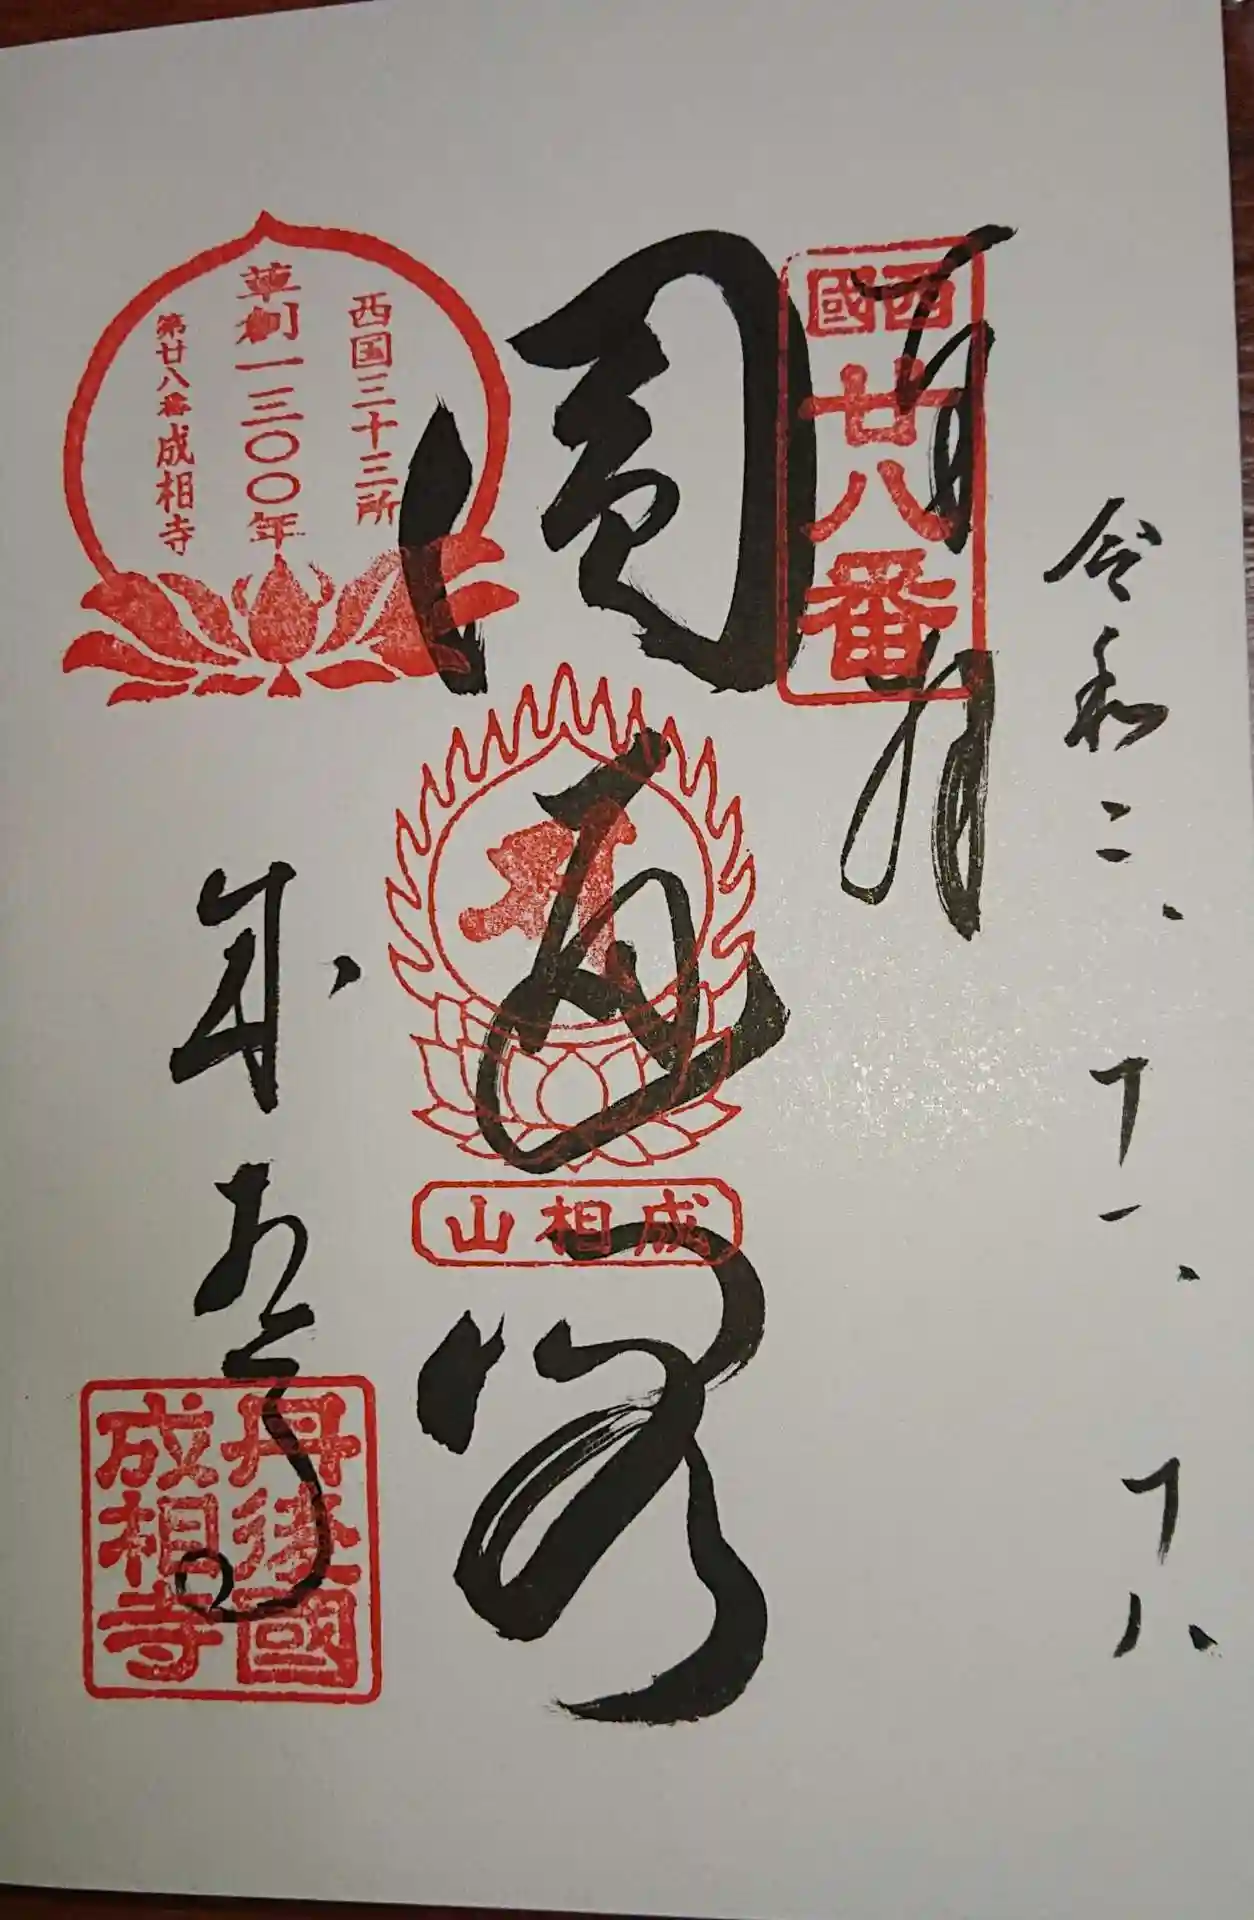 令和二、十一、十八
奉拝
西國
廿八番
圓通閣
成相山
西国三十三所
草創一三〇〇年
第廿八番 成相寺
成相寺
丹後國
成相寺